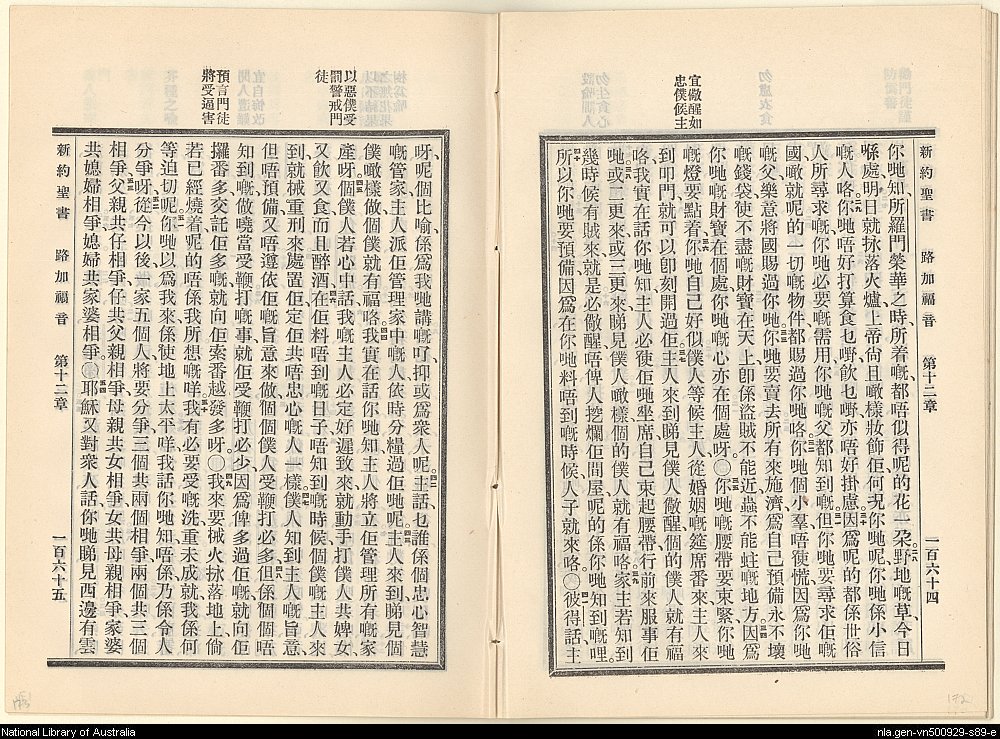 宜儆醒如
忠僕候主
新約聖書　路加福音　第十二章　一百六十四
你哋知所羅門榮華之時所着嘅都唔似得呢的花一朶野地嘅草今日
喺處明日就㧒落火爐上帝尙且噉樣妝飾佢何况你哋呢你哋係小信
嘅人咯你哋唔好打算食乜嘢飲乜嘢亦唔好掛慮因爲呢的都係世俗
人所尋求嘅你哋必要嘅需用你哋嘅父都知到嘅但你哋要尋求佢嘅
國噉就呢的一切嘅物件都賜過你哋咯你哋個小羣唔使慌因爲你哋
嘅父樂意將國賜過你哋你哋要賣去所有來施濟爲自己預備永不壞
嘅錢袋使不盡嘅財寶在天上卽係盜賊不能近蟲不能蛀嘅地方因爲
你哋嘅財寶在個處你哋嘅心亦在個處呀〇你哋嘅腰帶要束緊你哋
嘅燈要點着你哋自己好似僕人等候主人從婚姻嘅筵席番來主人來
到叩門就可以卽刻開過佢主人來到見僕人儆醒個的僕人就有福
咯我實在話你哋知主人必使佢哋坐席自己束起腰帶行前來服事佢
哋或二更來或三更來睇見僕人噉樣個的僕人就有福咯家主若知到
幾時候有賊來就是必儆醒唔俾人挖爛佢間屋呢的係你哋知到嘅哩
所以你哋要預備因爲在你哋料唔到嘅時候人子就來咯〇彼得話主
以惡僕受
罰警戒門
徒
預言門徒
將受逼害
呀呢個比喻係爲我哋講嘅吖抑或爲衆人呢主話乜誰係個忠心智慧
嘅管家主人派佢管理家中嘅人依時分糧過佢哋呢主人來到睇見個
僕噉樣做個僕就有福咯我實在話你哋知主人將立佢管理所有嘅家
產呀個僕人若心中話我嘅主人必定好遲致來就動手打僕人共婢女
又飲又食而且醉酒在佢料唔到嘅日子唔知到嘅時候個僕嘅主人來
到就械重刑來處置佢定佢共唔忠心嘅人一樣僕人知到主人嘅旨意
但唔預備又唔遵依佢嘅旨意來做個個僕人受鞭打必多但係個個唔
知到嘅做嘵當受鞭打嘅事就佢受鞭打必少因爲俾多過佢嘅就向佢
攞番多交託佢多嘅就向佢索番越發多呀〇我來要械火㧒落地上倘
若已經燒着呢的唔係我所想嘅咩我有必要受嘅洗重未成就我係何
等迫切呢你哋以爲我來係使地上太平咩我話你哋知唔係乃係令人
分爭呀從今以後一家五個人將要分爭三個共兩個相爭兩個共三個
相爭父親共仔相爭仔共父親相爭母親共女相爭女共母親相爭家婆
共媳婦相爭媳婦共家婆相爭〇耶穌又對衆人話你哋睇見西邊有雲
新約聖書　路加福音　第十二章　一百六十五
National Library of Australia
nla.gen-vn500929-s89-e